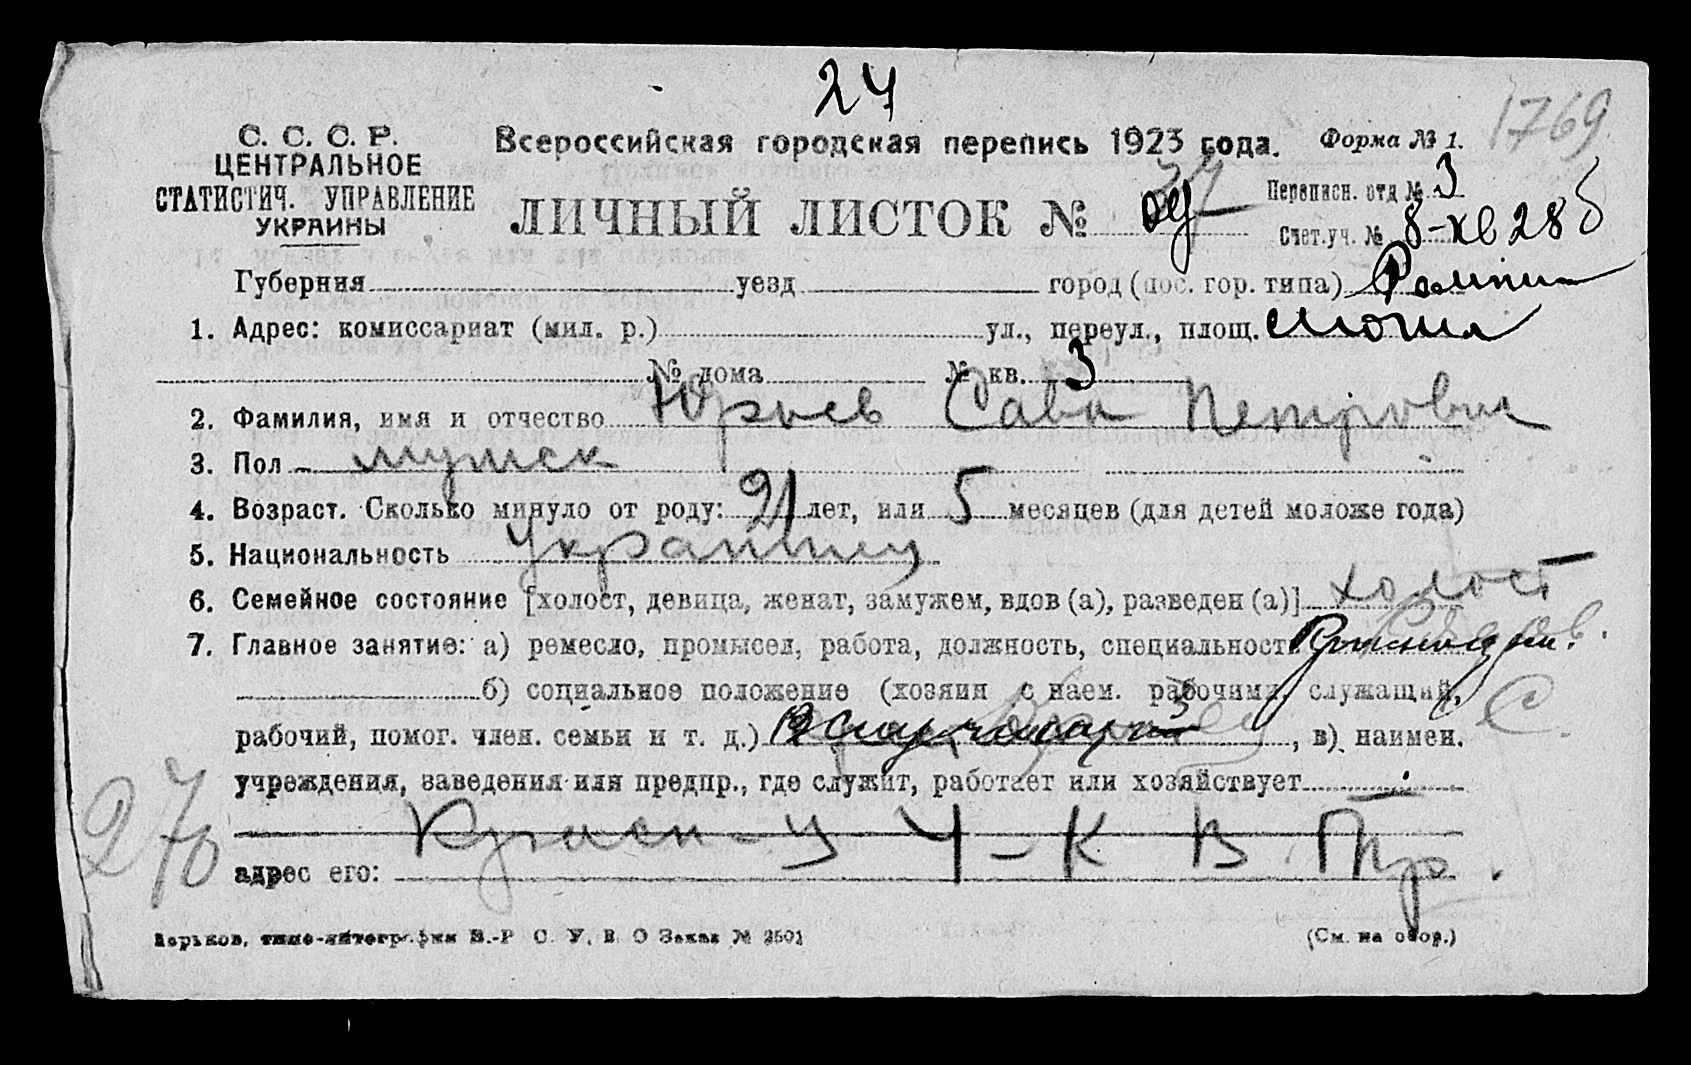 24
1769
С. С. С. Р.
ЦЕНТРАЛЬНОЕ
СТАТИСТИЧ. УПРАВЛЕНИЕ
УКРАИНЫ
Всероссийская городская перепись 1923 года.
Форма № 1.
ЛИЧНЫЙ ЛИСТОК №
Переписн. отд № 3
Счет.уч. № 8-кв 28 б
Губерния уезд город (пос. гор. типа)
1. Адрес: комиссариат (мил. р.) ул., переул., площ.
№ дома № кв. 3
2. Фамилия, имя и отчество Юрьев Сава Петрович
3. Пол мужск
4. Возраст. Сколько минуло от роду: 21 лет, или 5 месяцев (для детей моложе года)
5. Национальность Украинец
6. Семейное состояние [холост, девица, женат, замужем, вдов (а), разведен (а)] холост
7. Главное занятие: а) ремесло, промысел, работа, должность, специальность
б) социальное положение (хозяин с наем. рабочими, служащий,
рабочий, помог. член. семьи и т. д.) , в) наимен.
учреждения, заведения или предпр., где служит, работает или хозяйствует
адрес его:
270
Харьков, типо-литография В.-Р С. У. В. О Заказ № 3501
(См. на обор.)